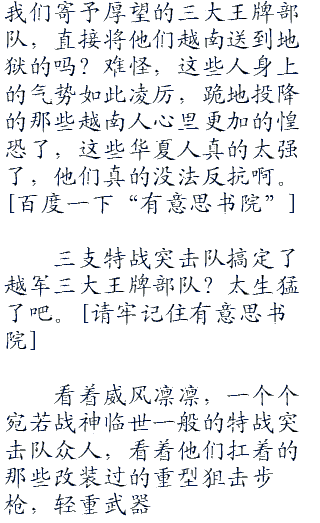 我们寄予厚望的三大王牌部
队，直接将他们越南送到地
狱的吗？难怪，这些人身上
的气势如此凌厉，跪地投降
的那些越南人心里更加的惶
恐了，这些华夏人真的太强
了，他们真的没法反抗啊。
[百度一下“有意思书院”]
三支特战突击队搞定了
越军三大王牌部队？太生猛
了吧。[请牢记住有意思书
院]
看着威风凛凛，一个个
宛若战神临世一般的特战突
击队众人，看着他们扛着的
那些改装过的重型狙击步
枪，轻重武器